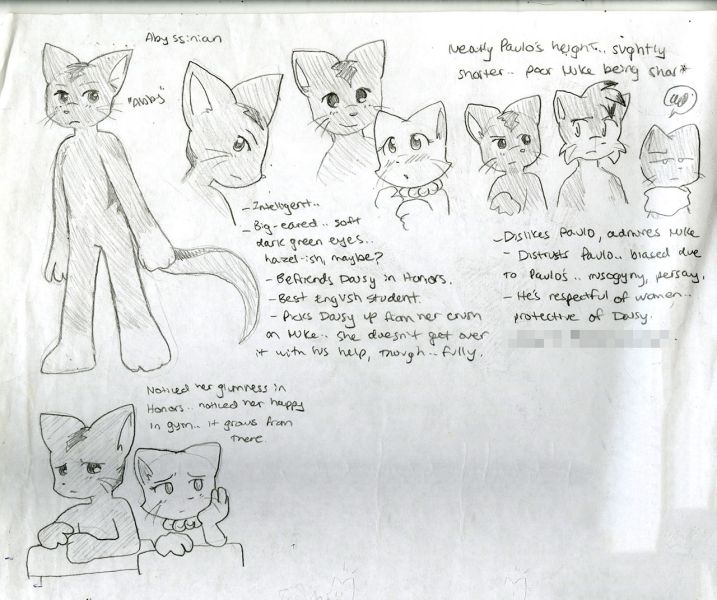 Abyssinian
"Abby"
Nearly Paulo's height.. slightly
shorter.. poor Mike being short
- Intelligent..
- Big-eared.. soft
dark green eyes..
hazel-ish, maybe?
- Befriends Daisy in Honors.
- Best English student.
- Picks Daisy up from her crush
on Mike.. she doesn't get over
it with his help, though.. fully.
- Dislikes Paulo, admires Mike
- Distrusts Paulo.. biased due
to Paulo's.. misogyny, persay.
- He's respectful of women..
protective of Daisy.
Noticed her glumness in
Honors.. noticed her happy
in gym.. it grows from
there.